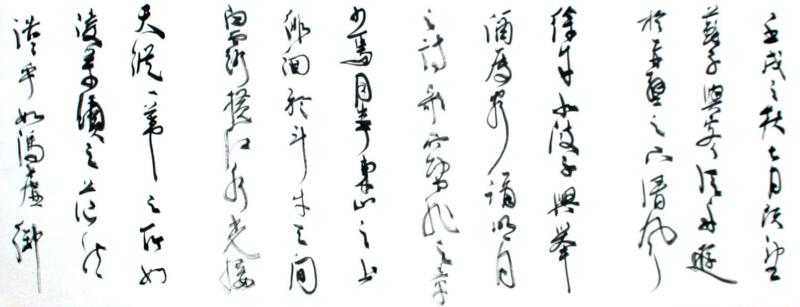 壬戌之秋七月既望
蘇子與客泛舟遊
於赤壁之下清風
徐來水波不興舉
酒屬客誦明月
之詩歌窈窕之章
少焉月出於東山之上
徘徊於斗牛之間
白露橫江水光接
天縱一葦之所如
凌萬頃之茫然
浩浩乎如馮虛御